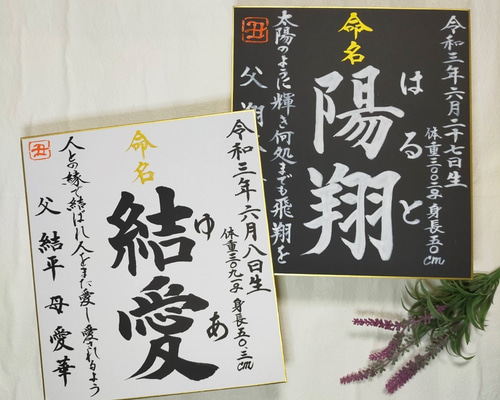 令和三年六月二十七日生
体重三〇〇二g 身長五〇cm
はると
命名
陽翔
太陽のように輝き何処までも飛翔を
父 翔
丑
令和三年六月八日生
体重三〇九一g 身長五〇.三cm
ゆあ
命名
結愛
人との縁で結ばれ人をまた愛し愛されるよう
父 結平 母 愛華
丑